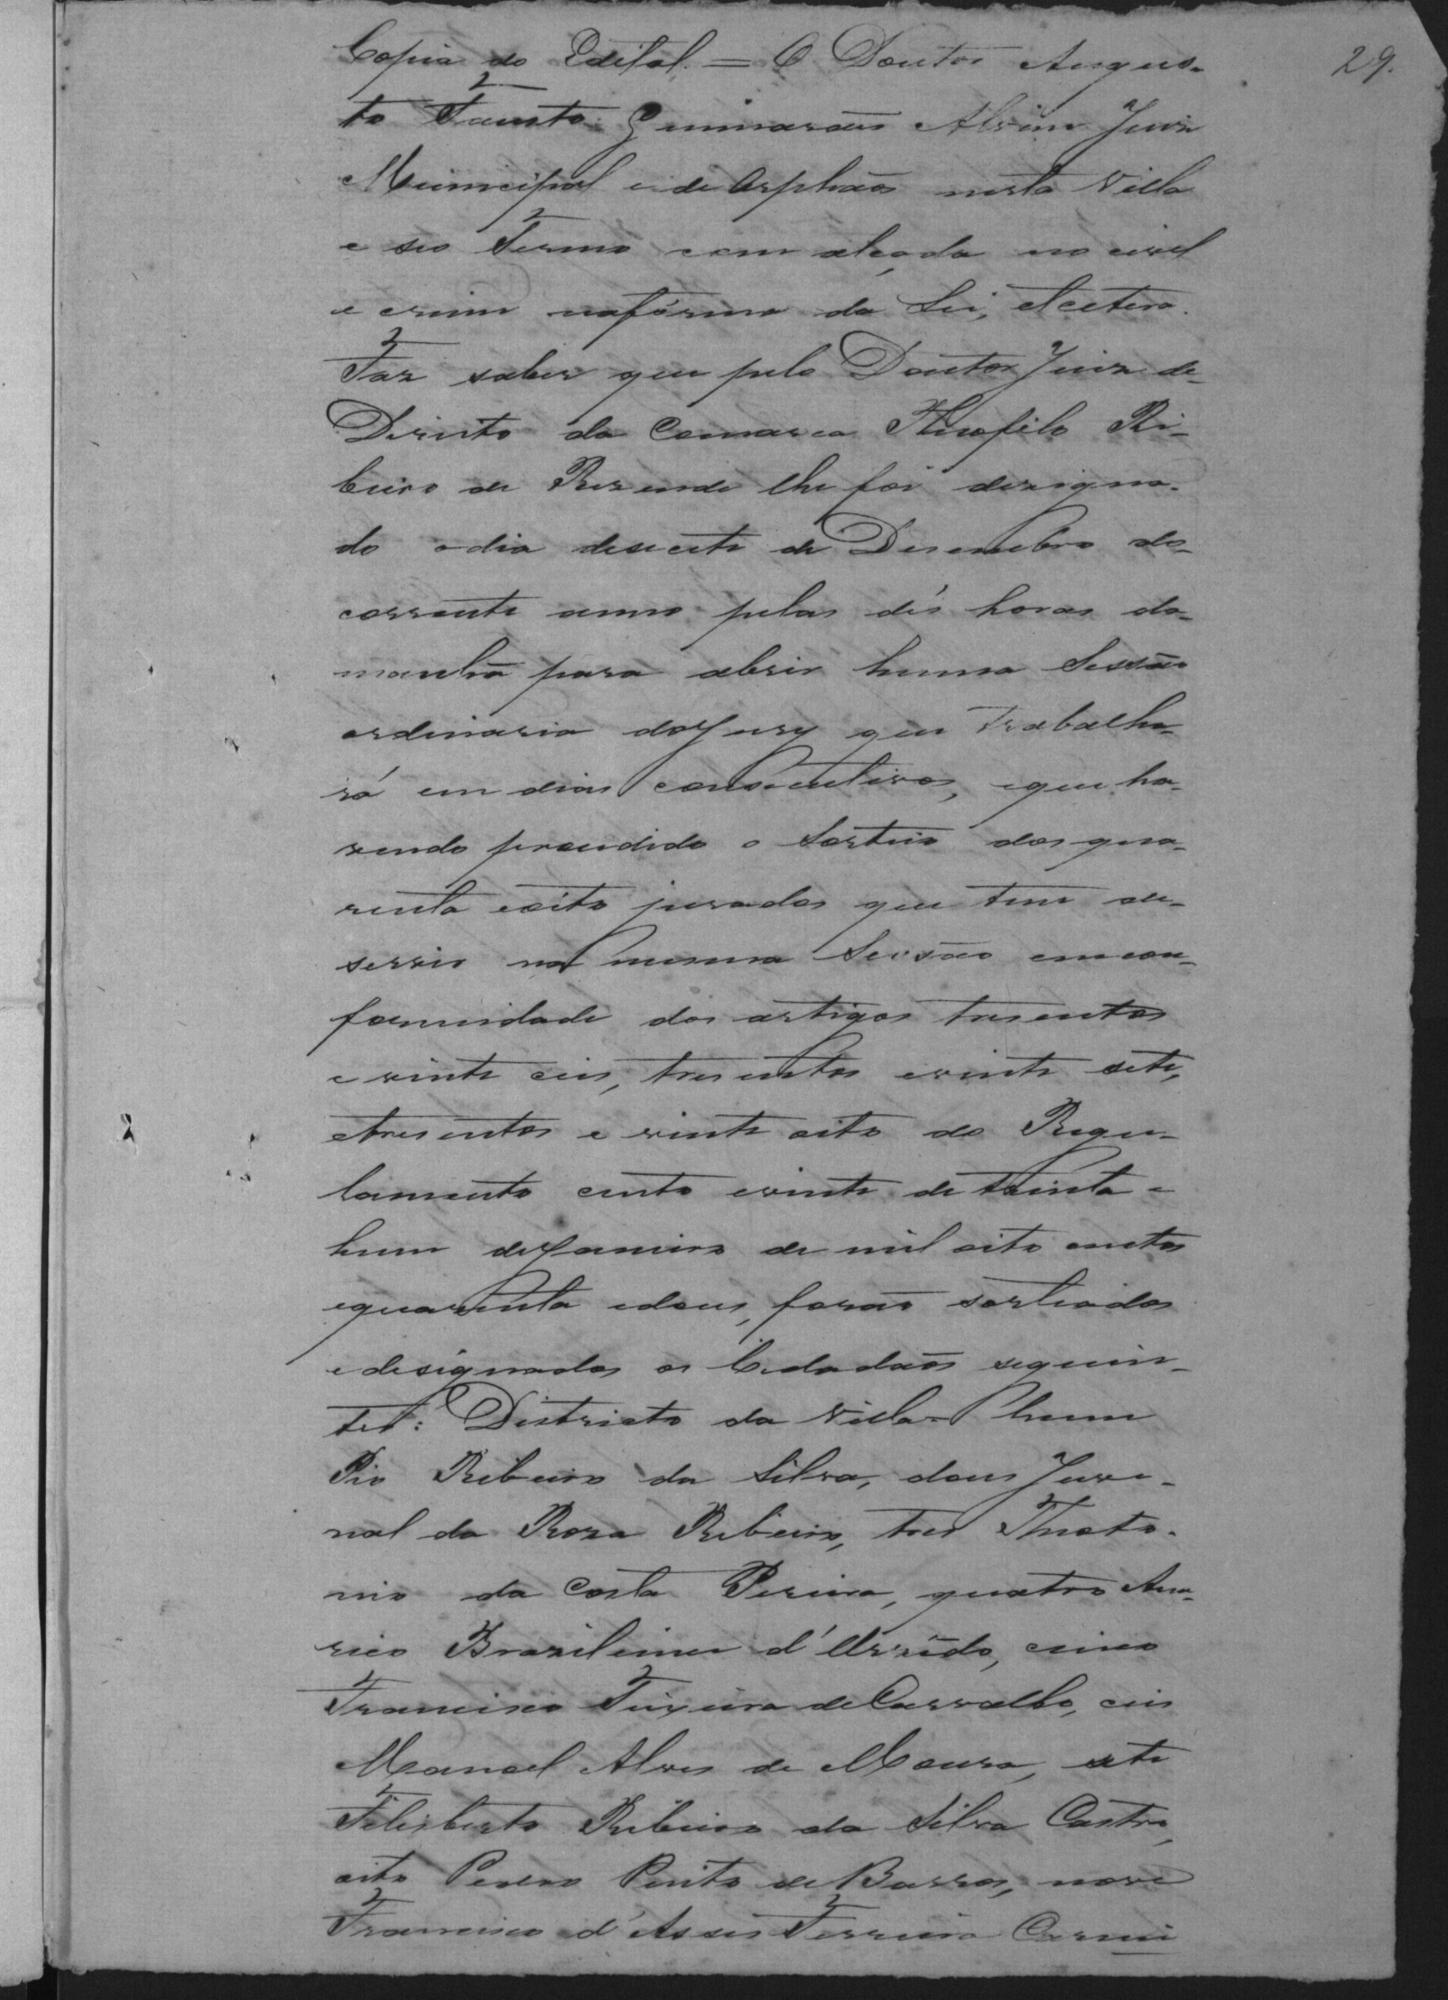 29.
Copia do Edital. = O Doutor Augus-
to Fausto Guimaraens Alvim Juiz
Municipal e de Orphãos nesta Villa
e seo Termo com alçada no civel
e crime na fórma da Lei, etcetera.
Faz saber que pelo Doutor Juiz de
Direito da Comarca Theofilo Ri-
beiro de Rezende lhe foi dezigna-
do o dia desecete de Desembro do
corrente anno pelas dés horas da
manhã para abrir huma Sessão
ordinaria do Jury que trabalha-
rá em dias consecutivos, e que ha-
vendo procedido o Sorteio dos qua-
renta e oito jurados que tem de
servir na mesma Sessão em con-
formidade dos artigos tresentos
e vinte ceis, tresentos e vinte sete,
e tresentos e vinte oito do Regu-
lamento cento e vinte de trinta e
hum de Janeiro de mil oito centos
e quarenta e dous, forão sorteados
e designados os Cidadãos seguin-
tes: Districto da Villa = hum
Pio Ribeiro da Silva, dous Juve-
nal da Roza Ribeiro, tres Theoto-
nio da Costa Pereira, quatro Ame-
rico Brazileiro d'Azevêdo, cinco
Francisco Teixeira de Carvalho, ceis
Manoel Alves de Moura, sete
Felisberto Ribeiro da Silva Castro,
oito Pedro Pinto de Barros, nove
Francisco d'Assis Ferreira Carnei